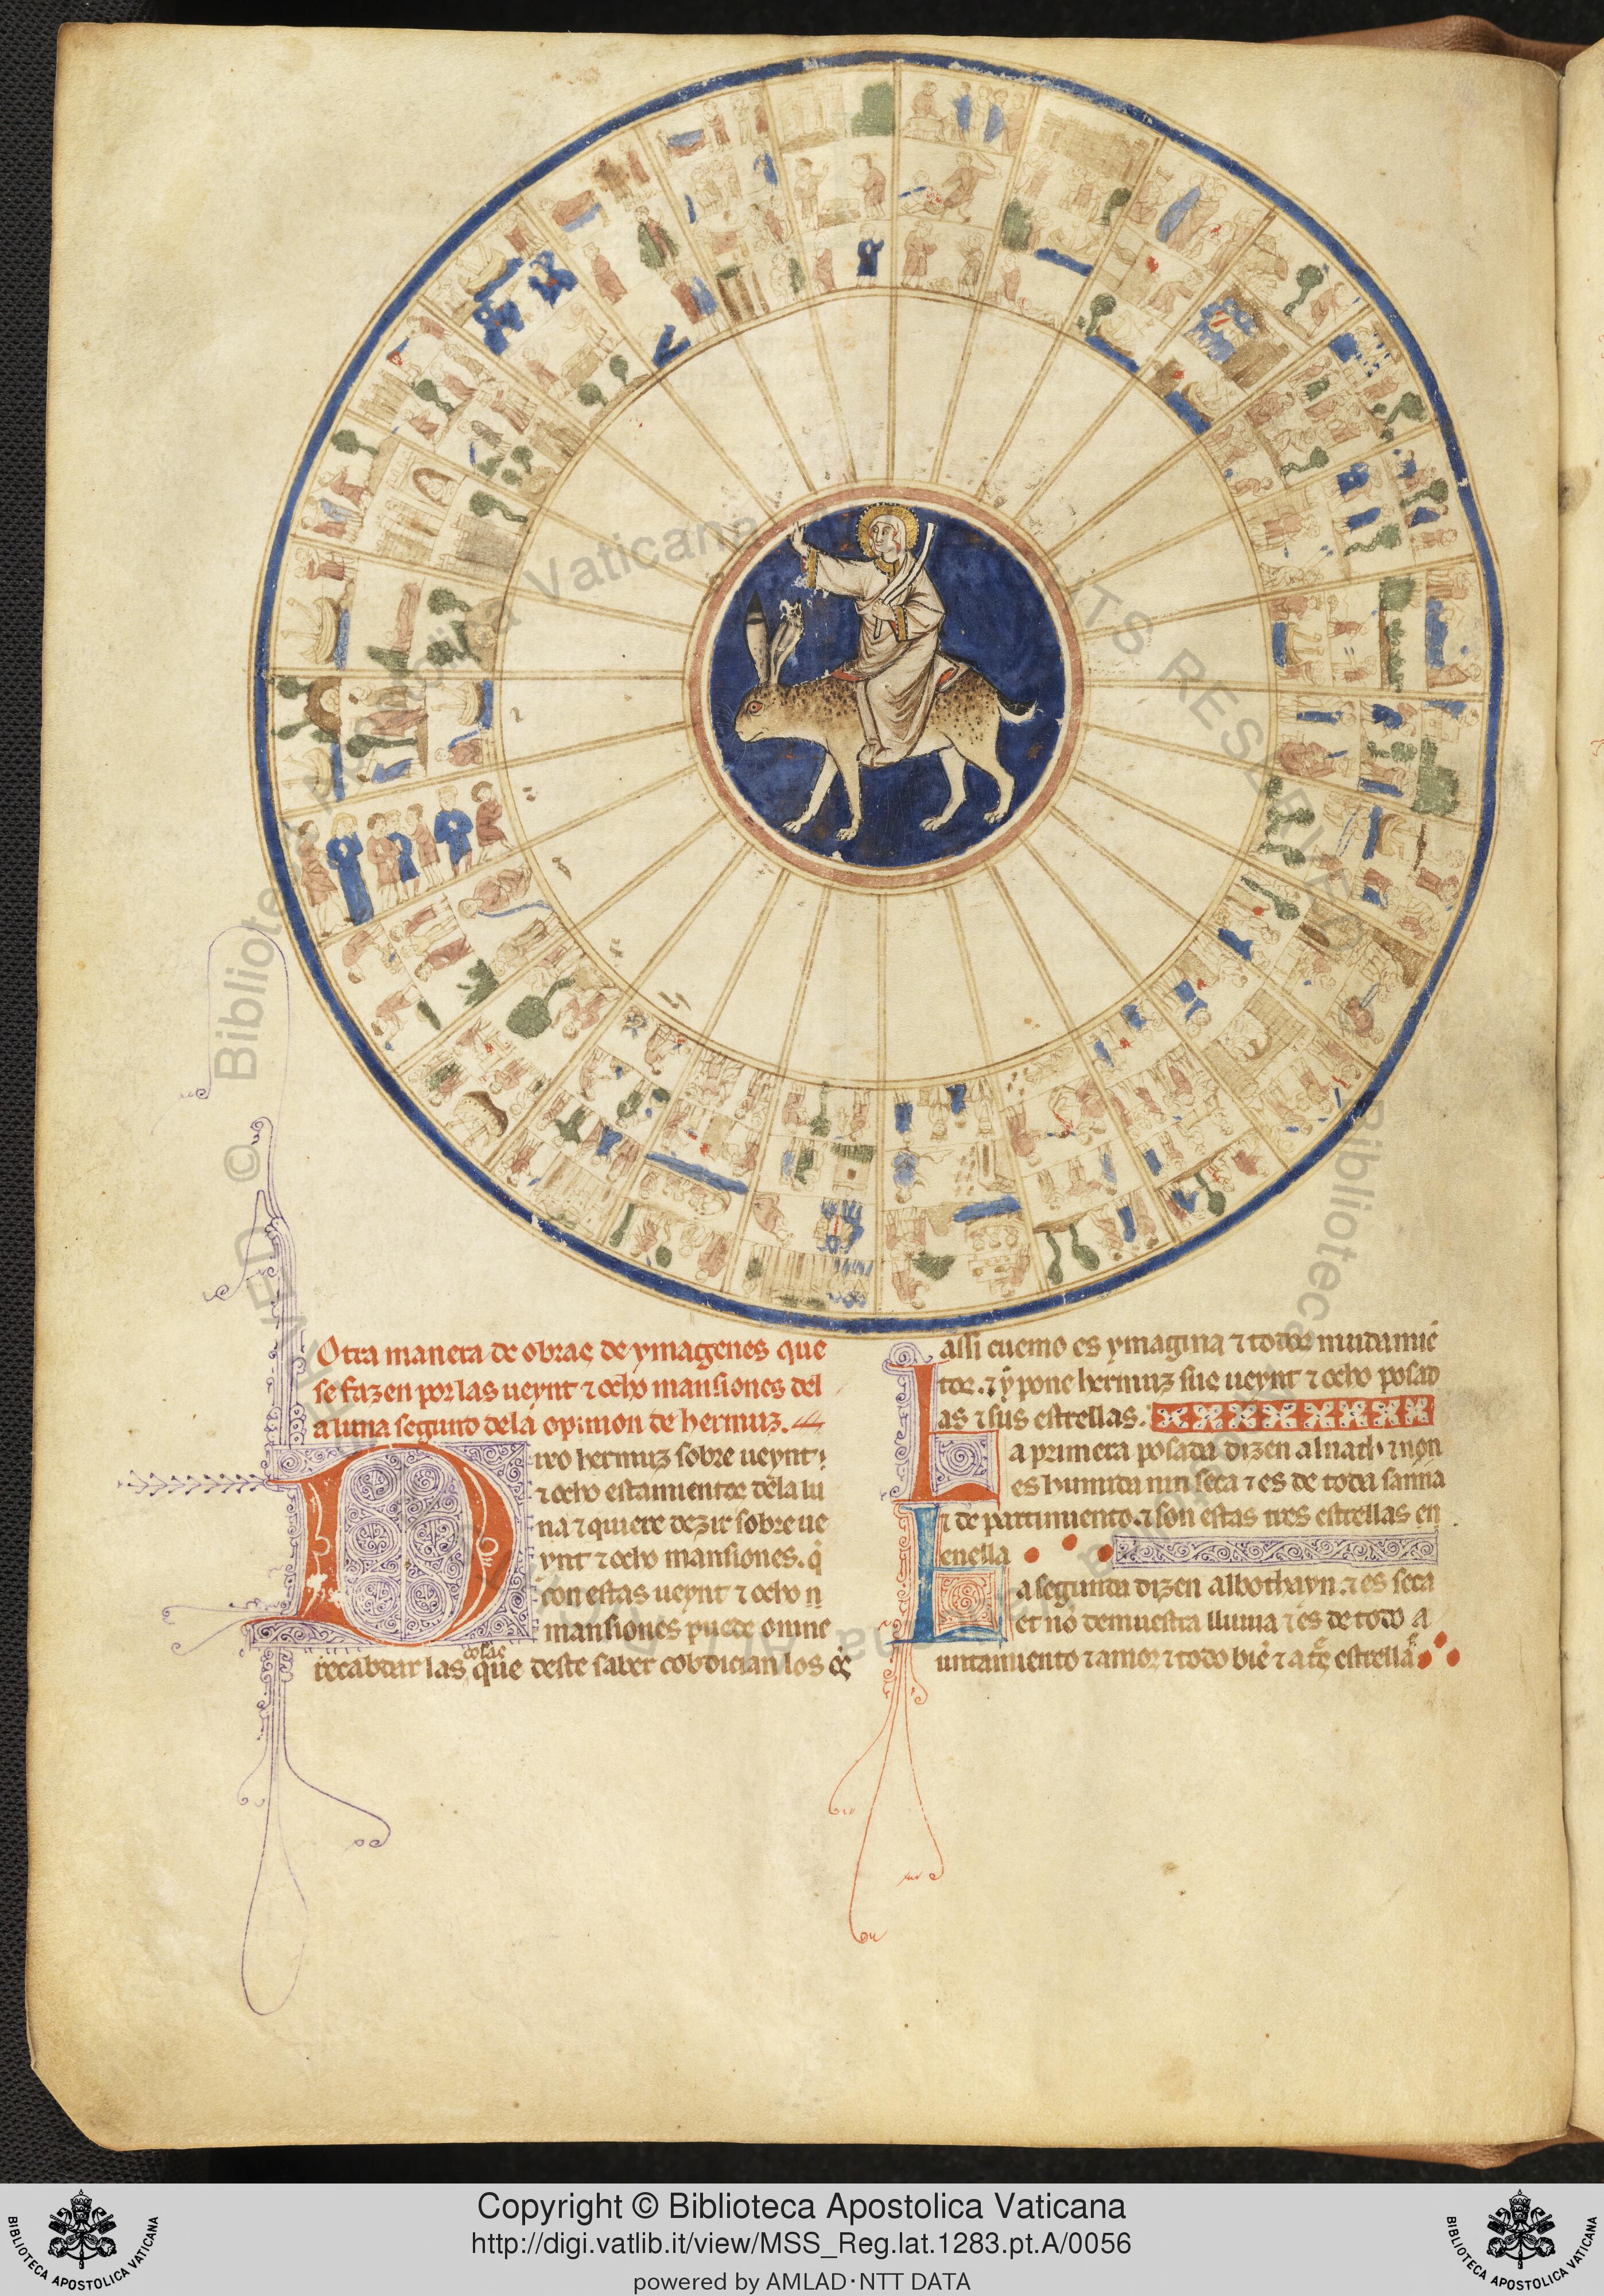 Otra manera de obras de ymagenes que
se fazen por las ueynt ⁊ ocho mansiones del
a luna segund dela opinion de hermuz.
Dixo hermuz sobre ueynt
⁊ ocho estamientos dela lu
na ⁊ quiere dezir sobre ue
ynt ⁊ ocho mansiones. q̇
con estas ueynt ⁊ ocho
mansiones puede omne
recabdar las cosas que deste saber cobdician los
assi cuemo es ymagina ⁊ todos mudamiē
tos. ⁊ ẏ pone hermuz sus ueynt ⁊ ocho posad
as ⁊ sus estrellas.
La primera posada dizen alnath ⁊ non
es humida nin seca ⁊ es de toda sanna
⁊ de partimiento. ⁊ son estas tres estrellas en
enella
La segunda dizen albothayn. ⁊ es seca
et no demuestra lluuia ⁊ es de todo a
untamiento ⁊ amor ⁊ todo biē ⁊ a estrellas
Copyright © Biblioteca Apostolica Vaticana
http://digi.vatlib.it/view/MSS_Reg.lat.1283.pt.A/0056
powered by AMLAD·NTT DATA
BIBLIOTECA APOSTOLICA VATICANA
BIBLIOTECA APOSTOLICA VATICANA